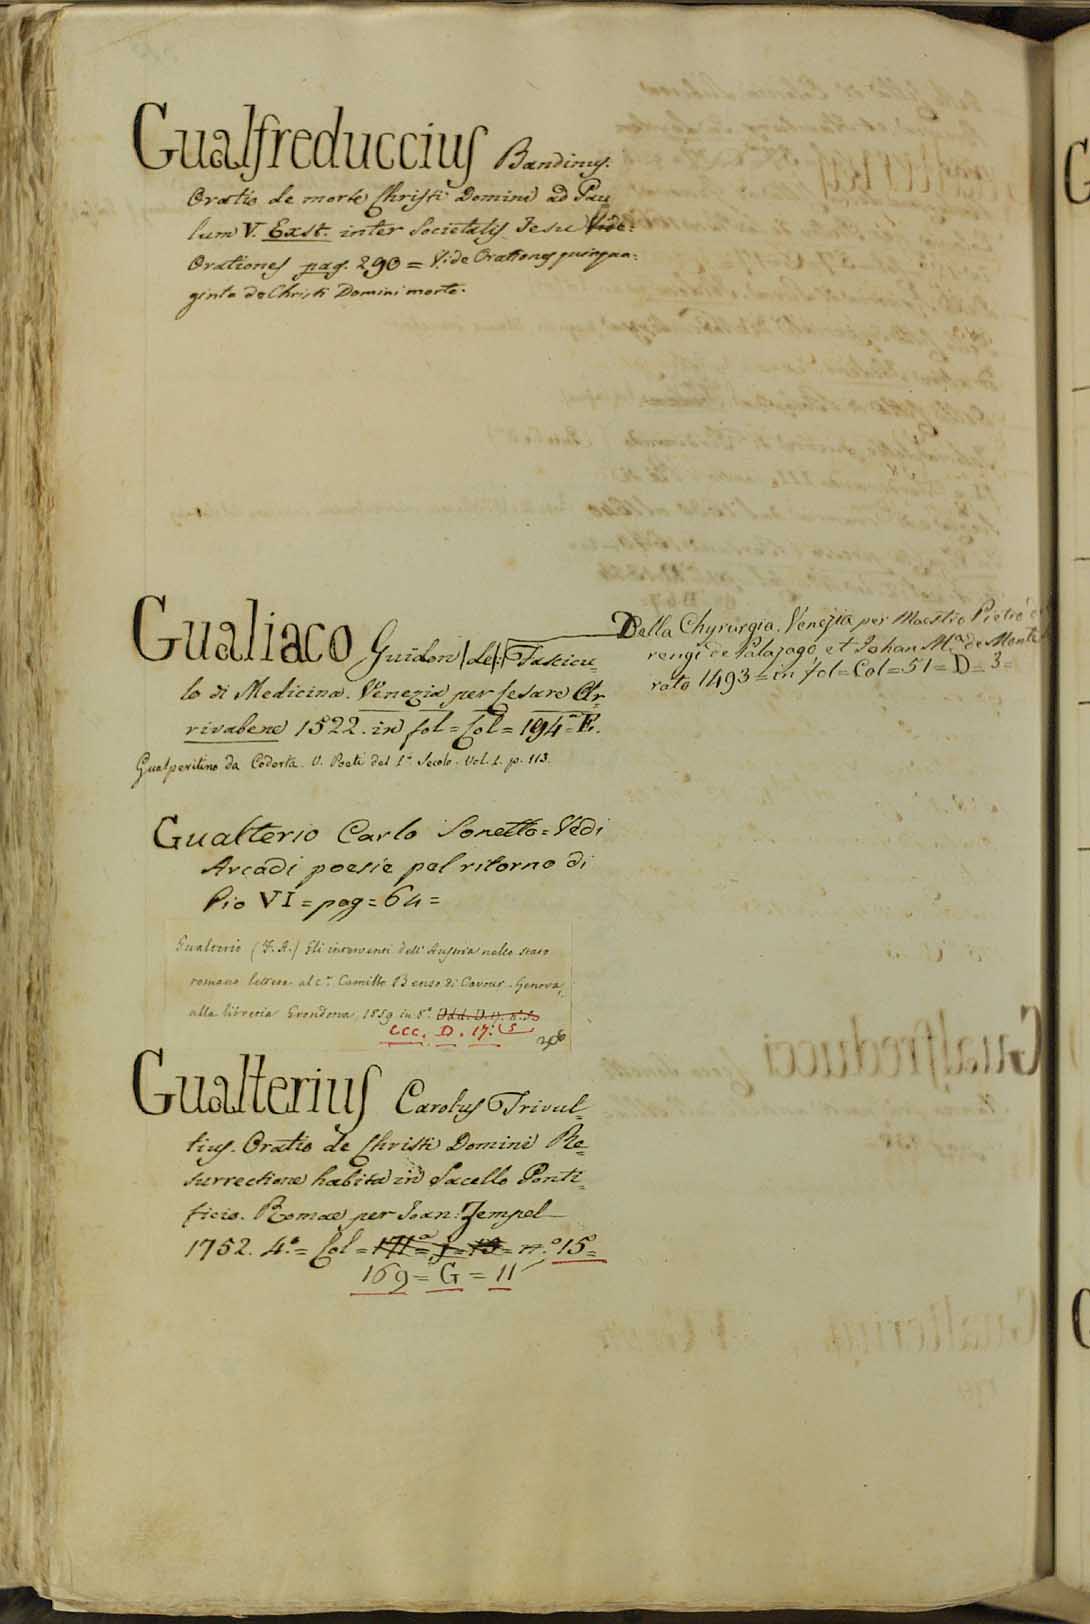 Gualfreduccius Bandinus.
Oratio de morte Christi Domini ad Pau
lum V. Exst. inter Societatis Jesu Vide:
Orationes pag. 290 = Vide Orationes quinqua:
ginta de Christi Domini morte.
Gualiaco Guidon /de/: Fascicu=
lo di Medicina. Venezia per Cesare Ar=
rivabene 1522. in fol = Col = 194 = E.
Della Chyrurgia. Venezia per Maestro Pietro
rengi de Palazago et Johan Mª de Monfe
rato 1493 = in fol = Col = 51 = D = 3 =
Gualpertino da Coderta. V. Poeti del 1º Secolo. Vol. 1. p. 113.
Gualterio Carlo Sonetto = Vedi
Arcadi poesie pel ritorno di
Pio VI = pag = 64 =
Gualterio (F. A.) Gli interventi dell' Austria nello stato
romano lettera al c.e Camillo Benso di Cavour. Genova,
alla libreria Grondona, 1859 in 8º
CCC. D. 17. 5
Gualterius Carolus Trivul=
tius. Oratio de Christi Domini Re=
surrectione habita in Sacello Ponti=
ficio. Romae per Joan: Zempel
1752. 4.º = Col = 171ª = f = 13 = n.º 15º =
169 = G = 11
Gualfreducci
Gualterius